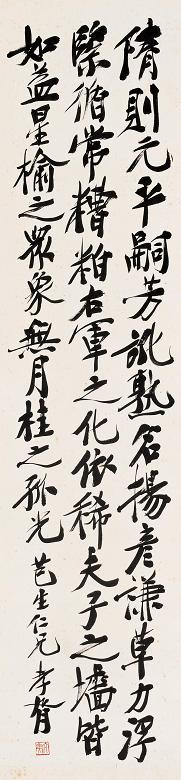 隋則元平嗣芳訛熟名揚彥謙草力浮
緊循常糟粕右軍之化依稀夫子之墻皆
如益星榆之眾象無月桂之孤光 芑生仁兄 孝胥